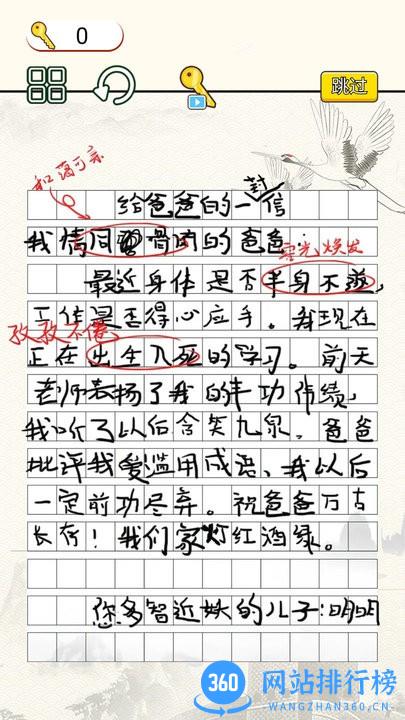 0
跳过
和蔼可亲
给爸爸的一封信
我情同骨肉的爸爸
容光焕发
最近身体是否半身不遂,
工作是否得心应手。我现在
孜孜不倦
正在出生入死的学习。前天
老师表扬了我的丰功伟绩,
我听了以后含笑九泉。爸爸
批评我爱滥用成语、我以后
一定前功尽弃。祝爸爸万古
长存!我们家灯红酒绿。
您多智近妖的儿子:明明
360 网站排行榜
WANGZHAN360.CN